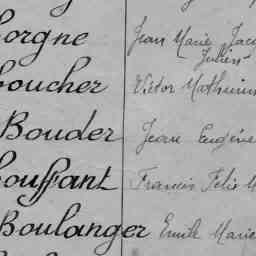 orgne Jean Marie Jacq
Julien
oucher Victor Mathurin
Bouder Jean Eugène
ouffant Francis Félix M
Boulanger Emile Marie